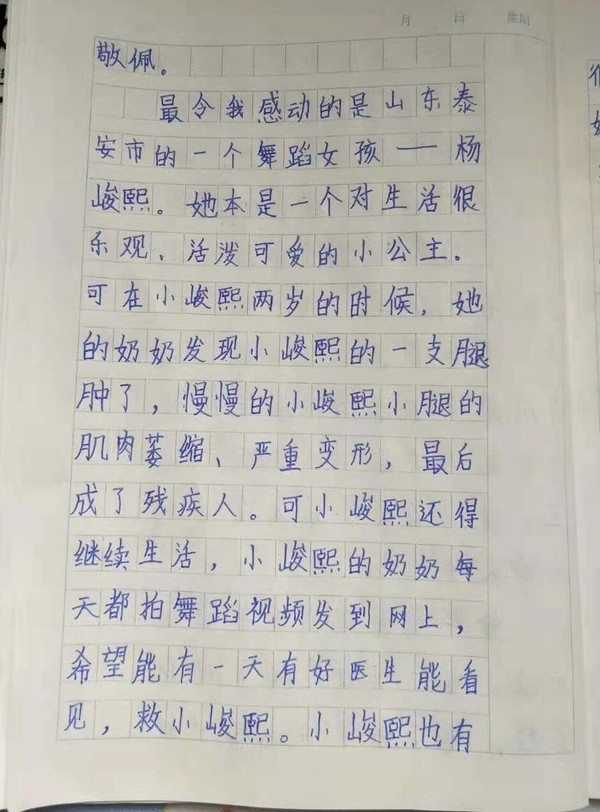 月 日 星期
敬佩。
最令我感动的是山东泰
安市的一个舞蹈女孩——杨
峻熙。她本是一个对生活很
乐观、活泼可爱的小公主。
可在小峻熙两岁的时候，她
的奶奶发现小峻熙的一支腿
肿了，慢慢的小峻熙小腿的
肌肉萎缩、严重变形，最后
成了残疾人。可小峻熙还得
继续生活，小峻熙的奶奶每
天都拍舞蹈视频发到网上，
希望能有一天有好医生能看
见，救小峻熙。小峻熙也有